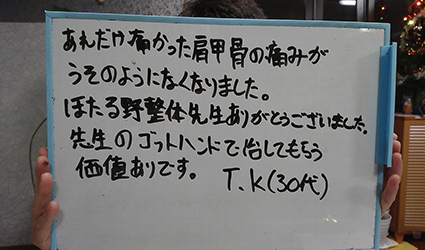 あれだけ痛かった肩甲骨の痛みが
うそのようになくなりました。
ほたる野整体先生ありがとうございました。
先生のゴットハンドで治してもらう
価値ありです。 T.K(30代)